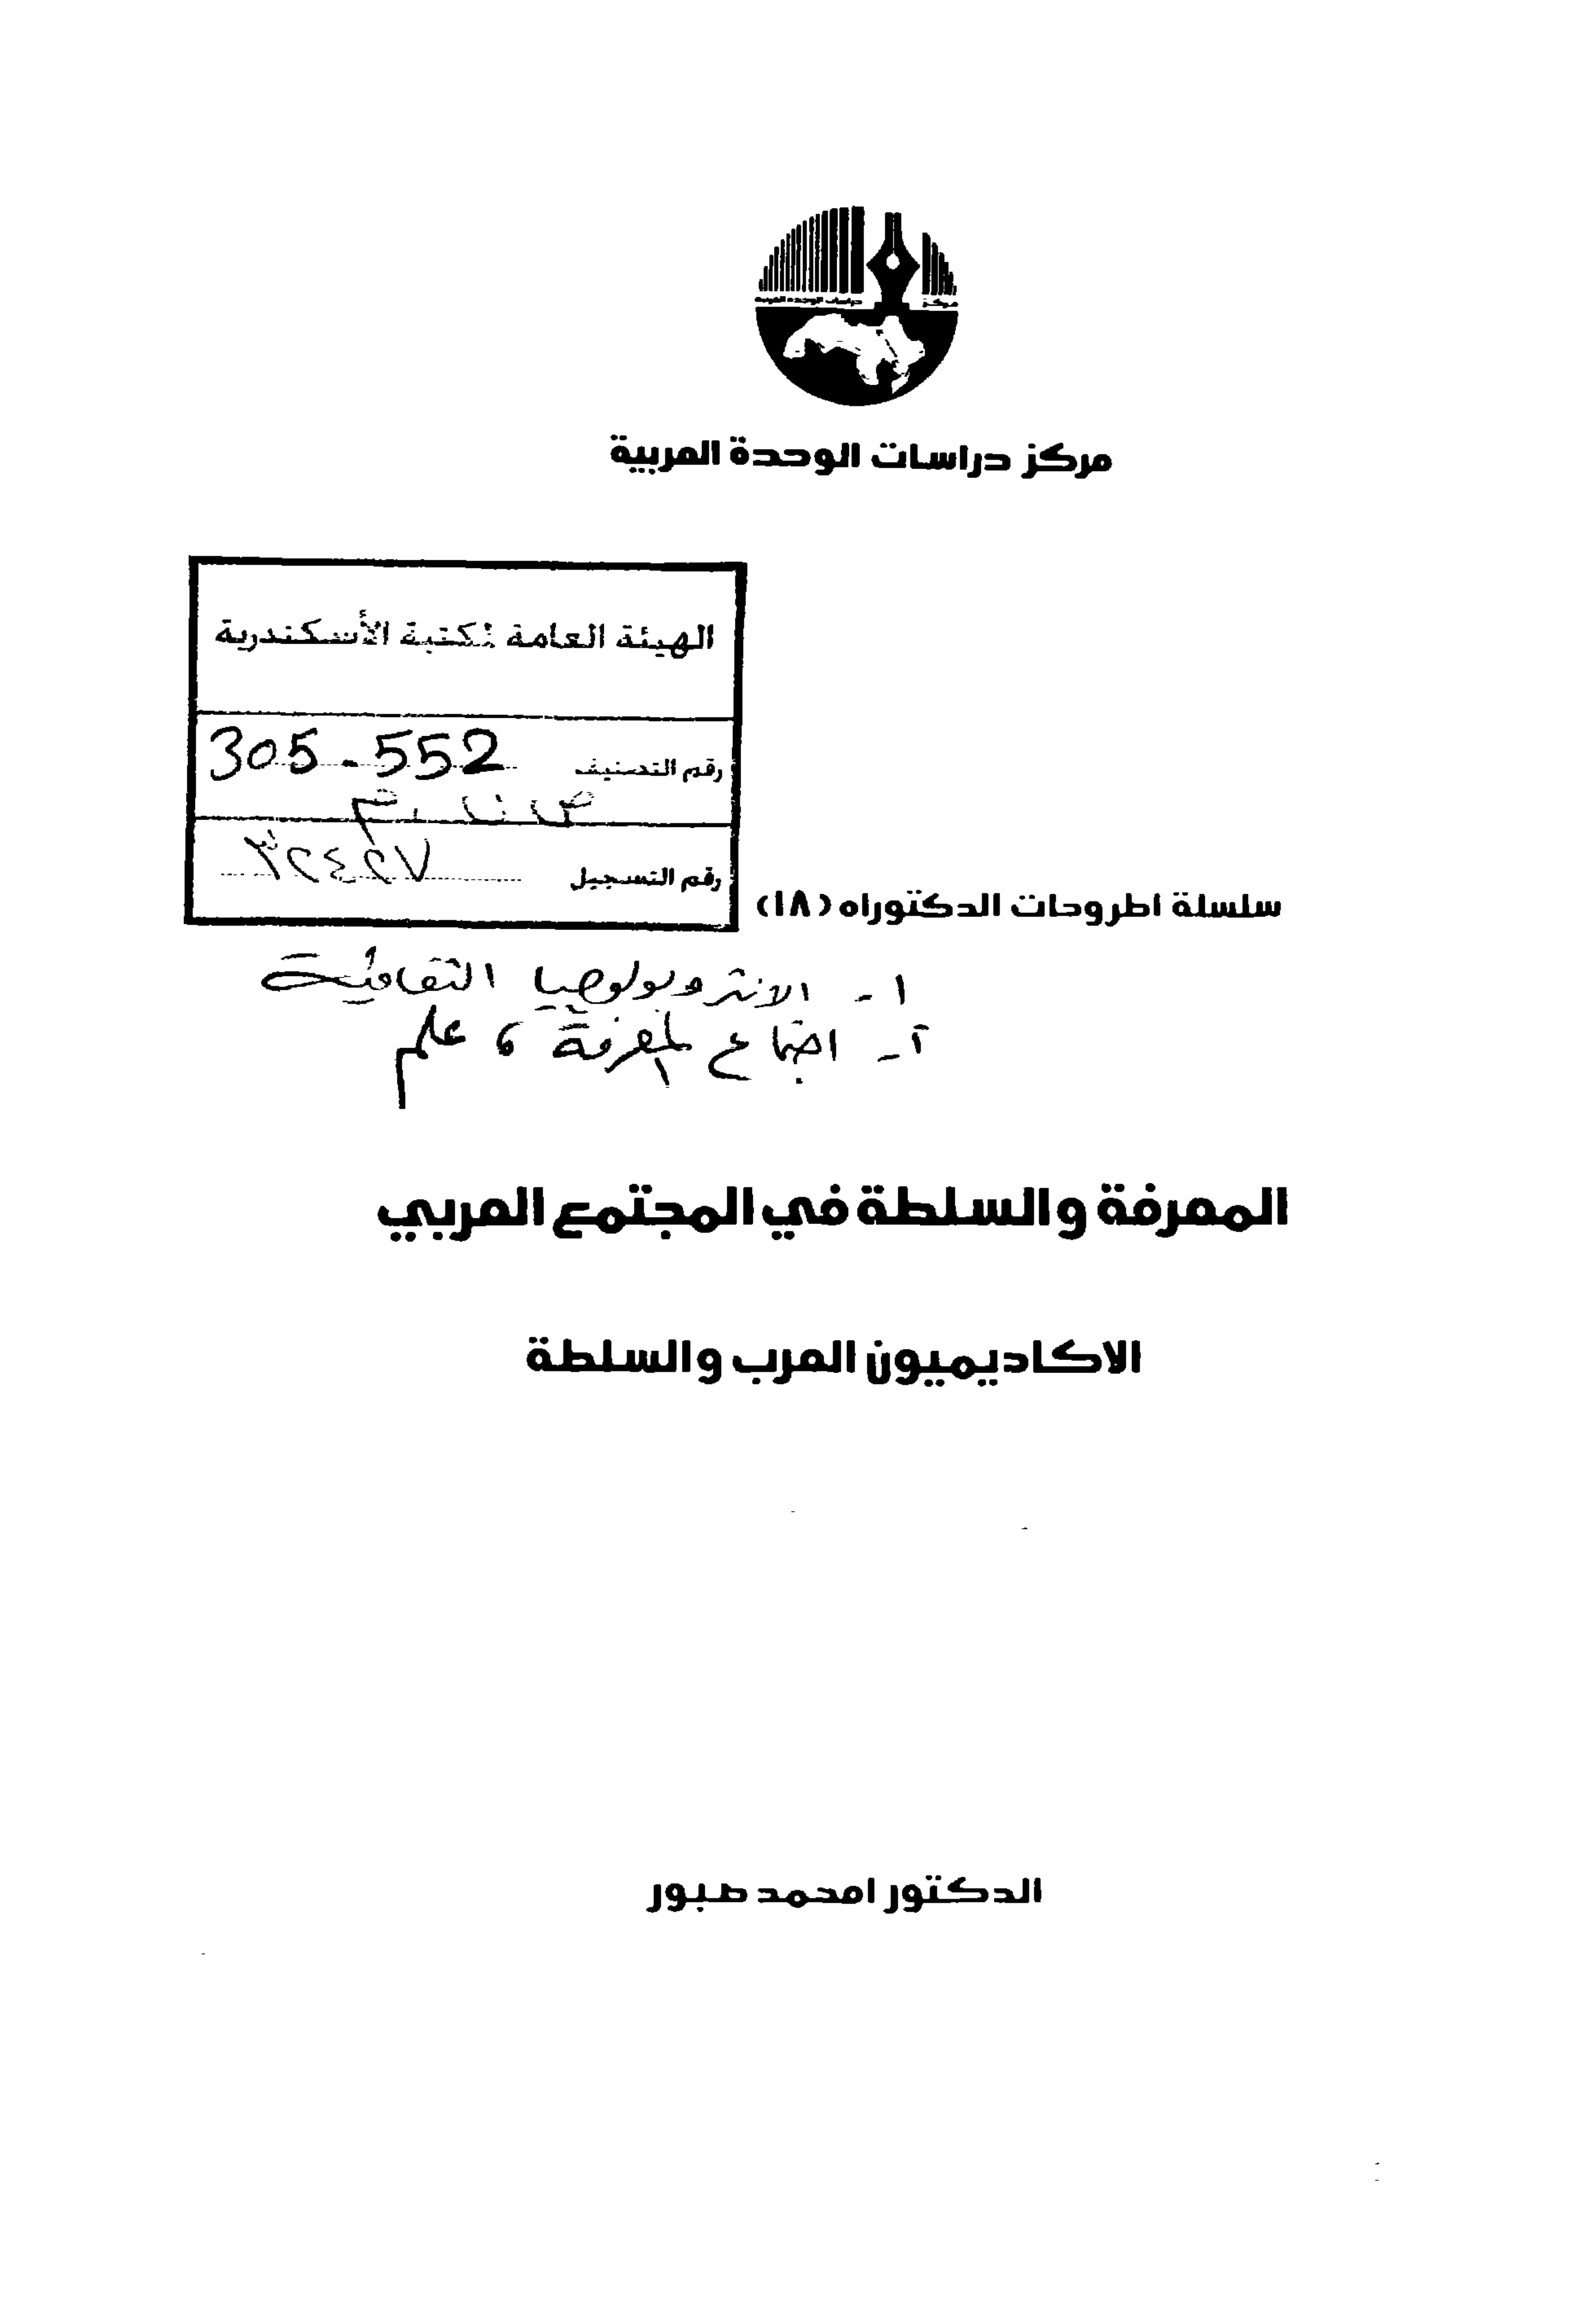 مركز دراسات الوحدة العربية
مركز دراسات الوحدة العربية
الهيئة العامة لمكتبة الأسكندرية
رقم التصنيف 305.552
رقم التسجيل ٣٢٤٢٧
سلسلة اطروحات الدكتوراه (١٨)
١- الانثروبولوجيا الثقافية
٢- اجتماع المعرفة ، علم
المعرفة والسلطة في المجتمع العربي
الاكاديميون العرب والسلطة
الدكتور امحمد صبور